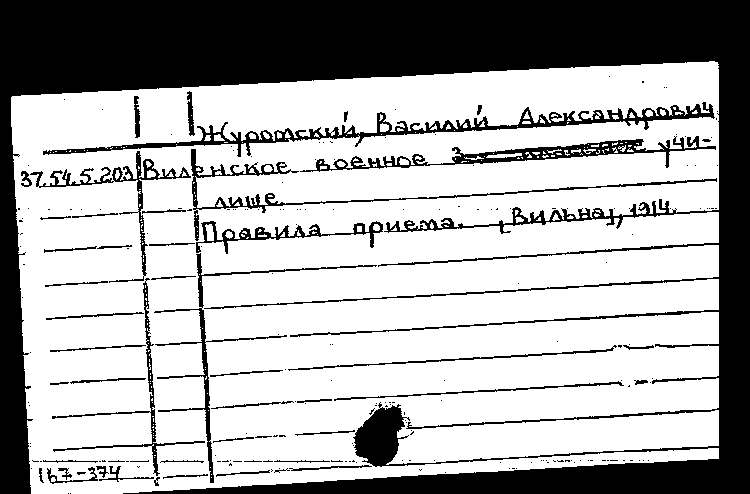 Журомский, Василий Александрович
37.54.5.203 Виленское военное учи-
лище.
Правила приема. [Вильна], 1914.
167-374